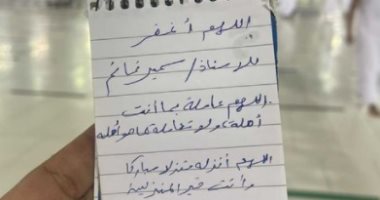 اللهم أغفر
للاستاذ / سمير غانم
اللهم عاملة بما أنت
أهلة، ولا تعاملة بما هو أهله
اللهم أنزله منزلا مباركا
وأنت خير المنزلين